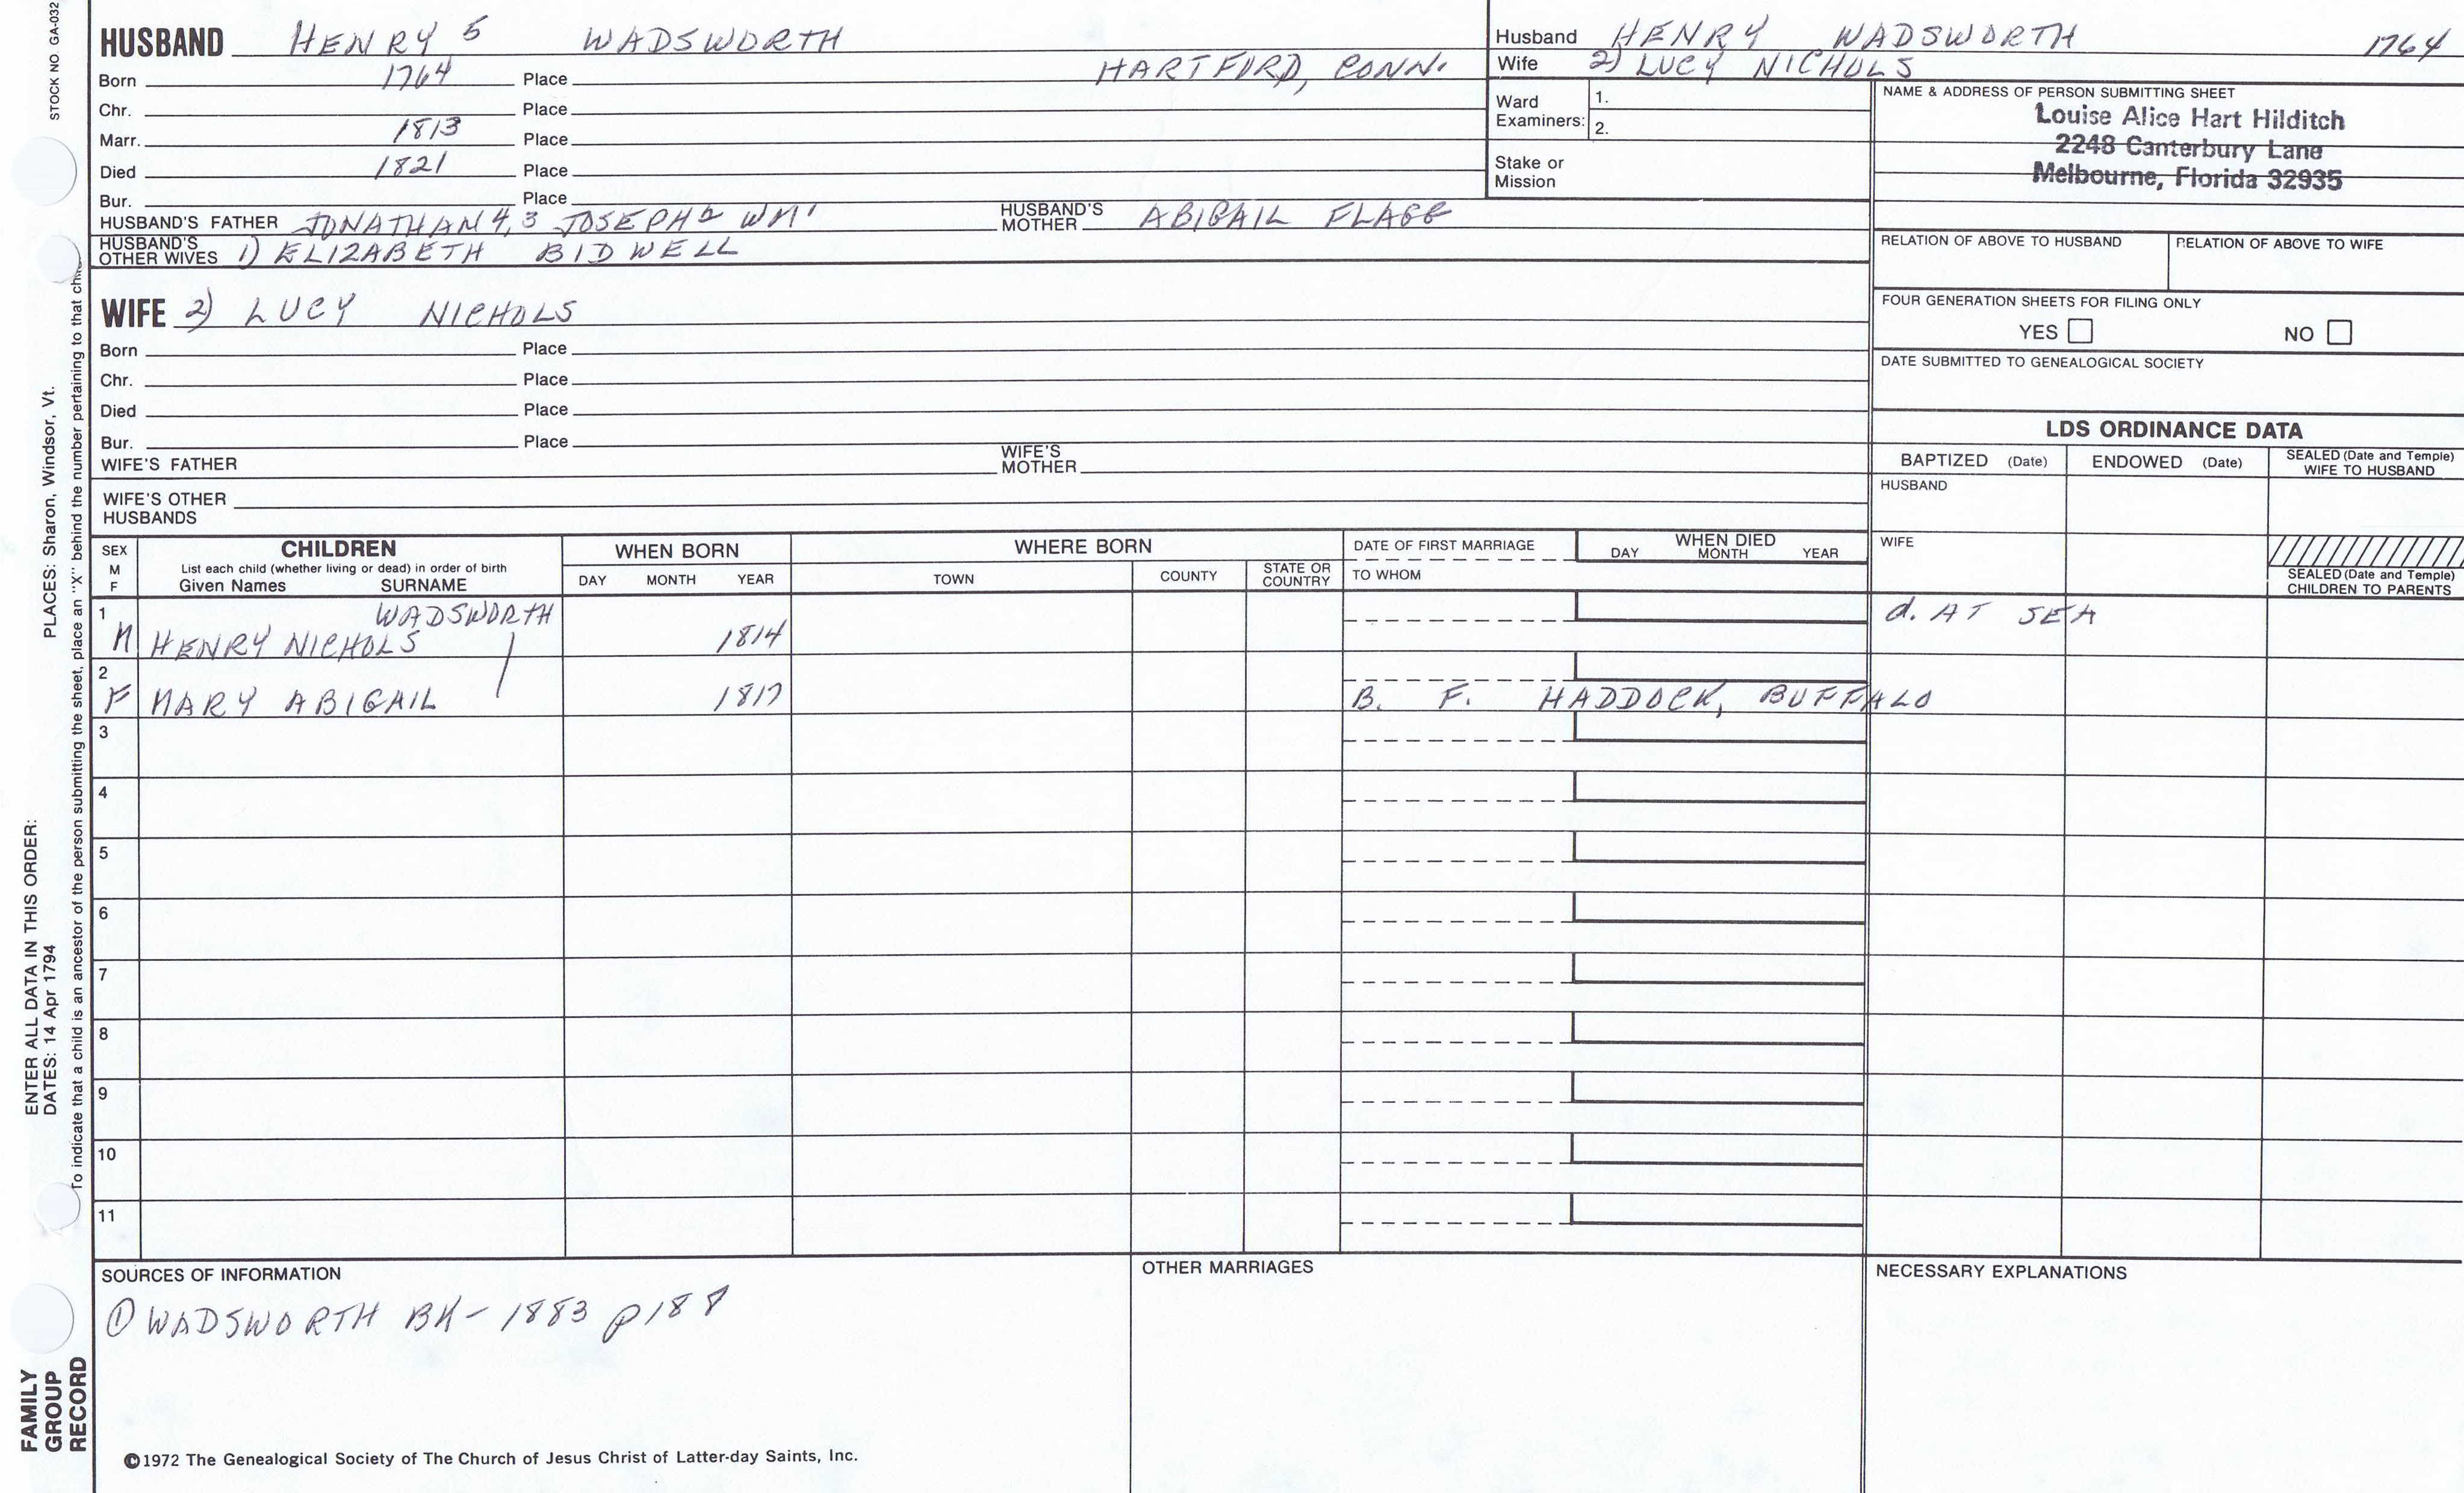 STOCK NO. GA-032
HUSBAND HENRY 5 WADSWORTH
Born 1764 Place HARTFORD, CONN.
Chr. Place
Marr. 1813 Place
Died 1821 Place
Bur. Place
HUSBAND'S FATHER JONATHAN 4, 3 JOSEPH 2 WM 1 HUSBAND'S MOTHER ABIGAIL FLAGG
HUSBAND'S OTHER WIVES 1) ELIZABETH BIDWELL
Husband HENRY WADSWORTH 1764
Wife 2) LUCY NICHOLS
Ward Examiners: 1.
2.
Stake or Mission
NAME & ADDRESS OF PERSON SUBMITTING SHEET
Louise Alice Hart Hilditch
2248 Canterbury Lane
Melbourne, Florida 32935
RELATION OF ABOVE TO HUSBAND RELATION OF ABOVE TO WIFE
FOUR GENERATION SHEETS FOR FILING ONLY
YES NO
DATE SUBMITTED TO GENEALOGICAL SOCIETY
WIFE 2) LUCY NICHOLS
Born Place
Chr. Place
Died Place
Bur. Place
WIFE'S FATHER WIFE'S MOTHER
WIFE'S OTHER HUSBANDS
LDS ORDINANCE DATA
BAPTIZED (Date) ENDOWED (Date) SEALED (Date and Temple) WIFE TO HUSBAND
HUSBAND
WIFE
SEALED (Date and Temple) CHILDREN TO PARENTS
SEX M F
CHILDREN
List each child (whether living or dead) in order of birth
Given Names SURNAME
WHEN BORN
DAY MONTH YEAR
WHERE BORN
TOWN COUNTY STATE OR COUNTRY
DATE OF FIRST MARRIAGE
TO WHOM
WHEN DIED
DAY MONTH YEAR
1 WADSWORTH
M HENRY NICHOLS 1814 d. AT SEA
2
F MARY ABIGAIL 1817 B. F. HADDOCK, BUFFALO
3
4
5
6
7
8
9
10
11
SOURCES OF INFORMATION
① WADSWORTH BK - 1883 p188
OTHER MARRIAGES
NECESSARY EXPLANATIONS
©1972 The Genealogical Society of The Church of Jesus Christ of Latter-day Saints, Inc.
FAMILY GROUP RECORD
ENTER ALL DATA IN THIS ORDER:
DATES: 14 Apr 1794 PLACES: Sharon, Windsor, Vt.
To indicate that a child is an ancestor of the person submitting the sheet, place an "X" behind the number pertaining to that